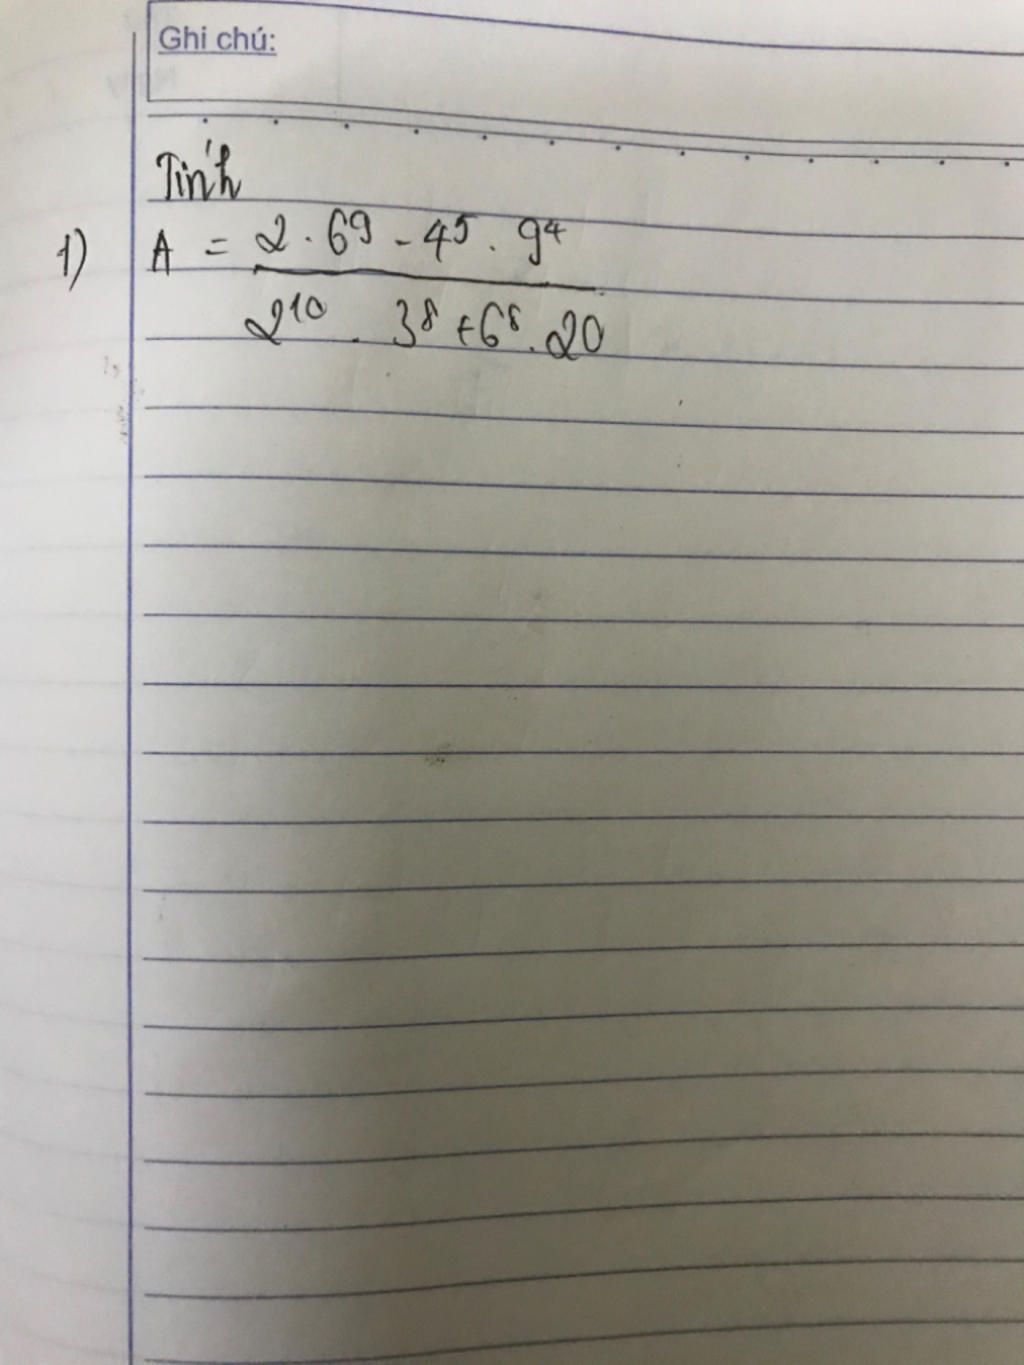 Ghi chú:
Tính
1) A = 2 . 6⁹ - 4⁵ . 9⁴
2¹⁰ . 3⁸ + 6⁸ . 20